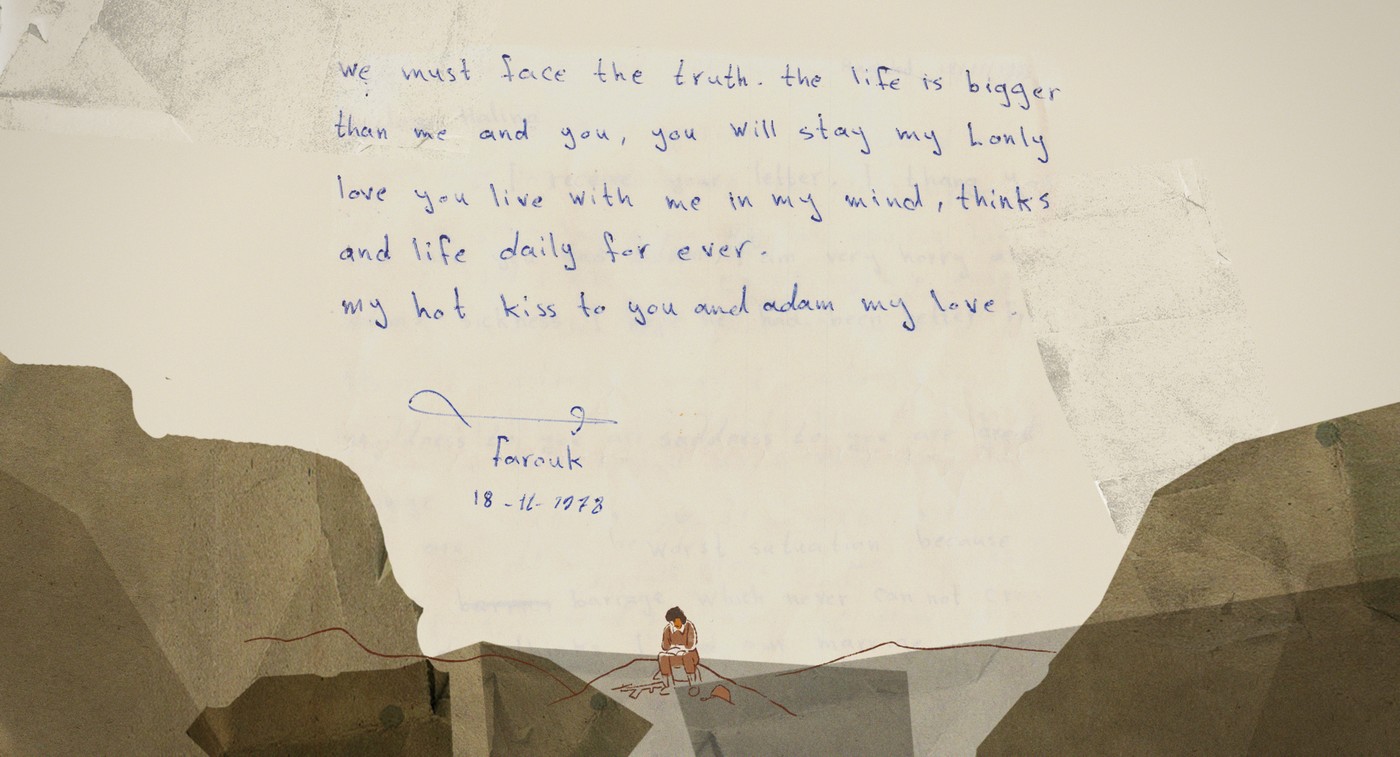 we must face the truth. the life is bigger
than me and you, you will stay my Lonly
love you live with me in my mind, thinks
and life daily for ever.
my hot kiss to you and adam my love.
farouk
18-11-1978
your letter. I
very
worst situation because
barriage which never can not